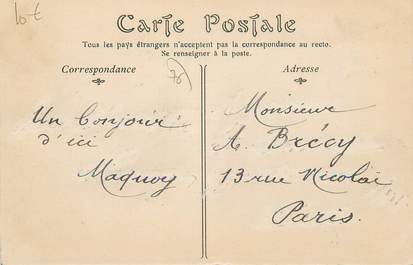 10 €
Carte Postale
Tous les pays étrangers n'acceptent pas la correspondance au recto.
Se renseigner à la poste.
Correspondance
76
Un bonjour
d'ici
Maquoy
Adresse
Monsieur
A. Brécy
13 rue Nicolaï
Paris.